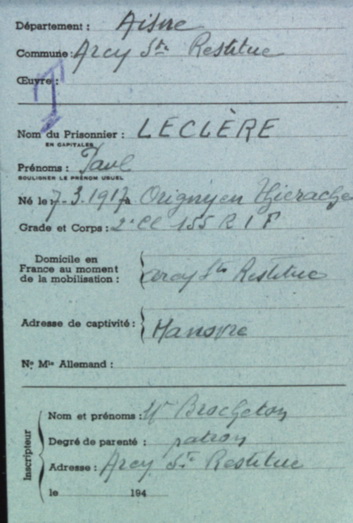 Département : Aisne
Commune : Arcy Ste Restitue
Œuvre :
Nom du Prisonnier : LECLÈRE
EN CAPITALES
Prénoms : Paul
SOULIGNER LE PRÉNOM USUEL
Né le : 7.3.1917 à Origny en Thierache
Grade et Corps : 2e Cl 155 R I F
Domicile en
France au moment
de la mobilisation : Arcy Ste Restitue
Adresse de captivité : Hanovre
No Mle Allemand :
Inscripteur
Nom et prénoms : Mr Brocheton
Degré de parenté : patron
Adresse : Arcy Ste Restitue
le 194